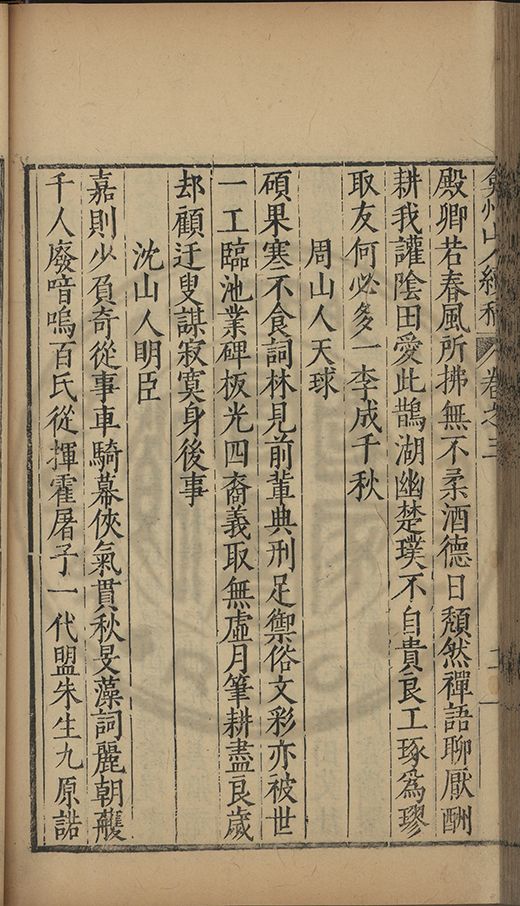 弇州山人續稿 卷之三
殿卿若春風所拂無不柔酒德日頹然禪語聊厭酬
耕我讙陰田愛此鵲湖幽楚璞不自貴良工琢為璆
取友何必多一李成千秋
周山人天球
碩果寒不食詞林見前輩典刑足禦俗文彩亦被世
一工臨池業碑板光四裔義取無虛月筆耕盡良歲
却顧迂叟謀寂寞身後事
沈山人明臣
嘉則少負奇從事車騎幕俠氣貫秋旻藻詞麗朝雘
千人廢喑嗚百氏從揮霍屠子一代盟朱生九原諾